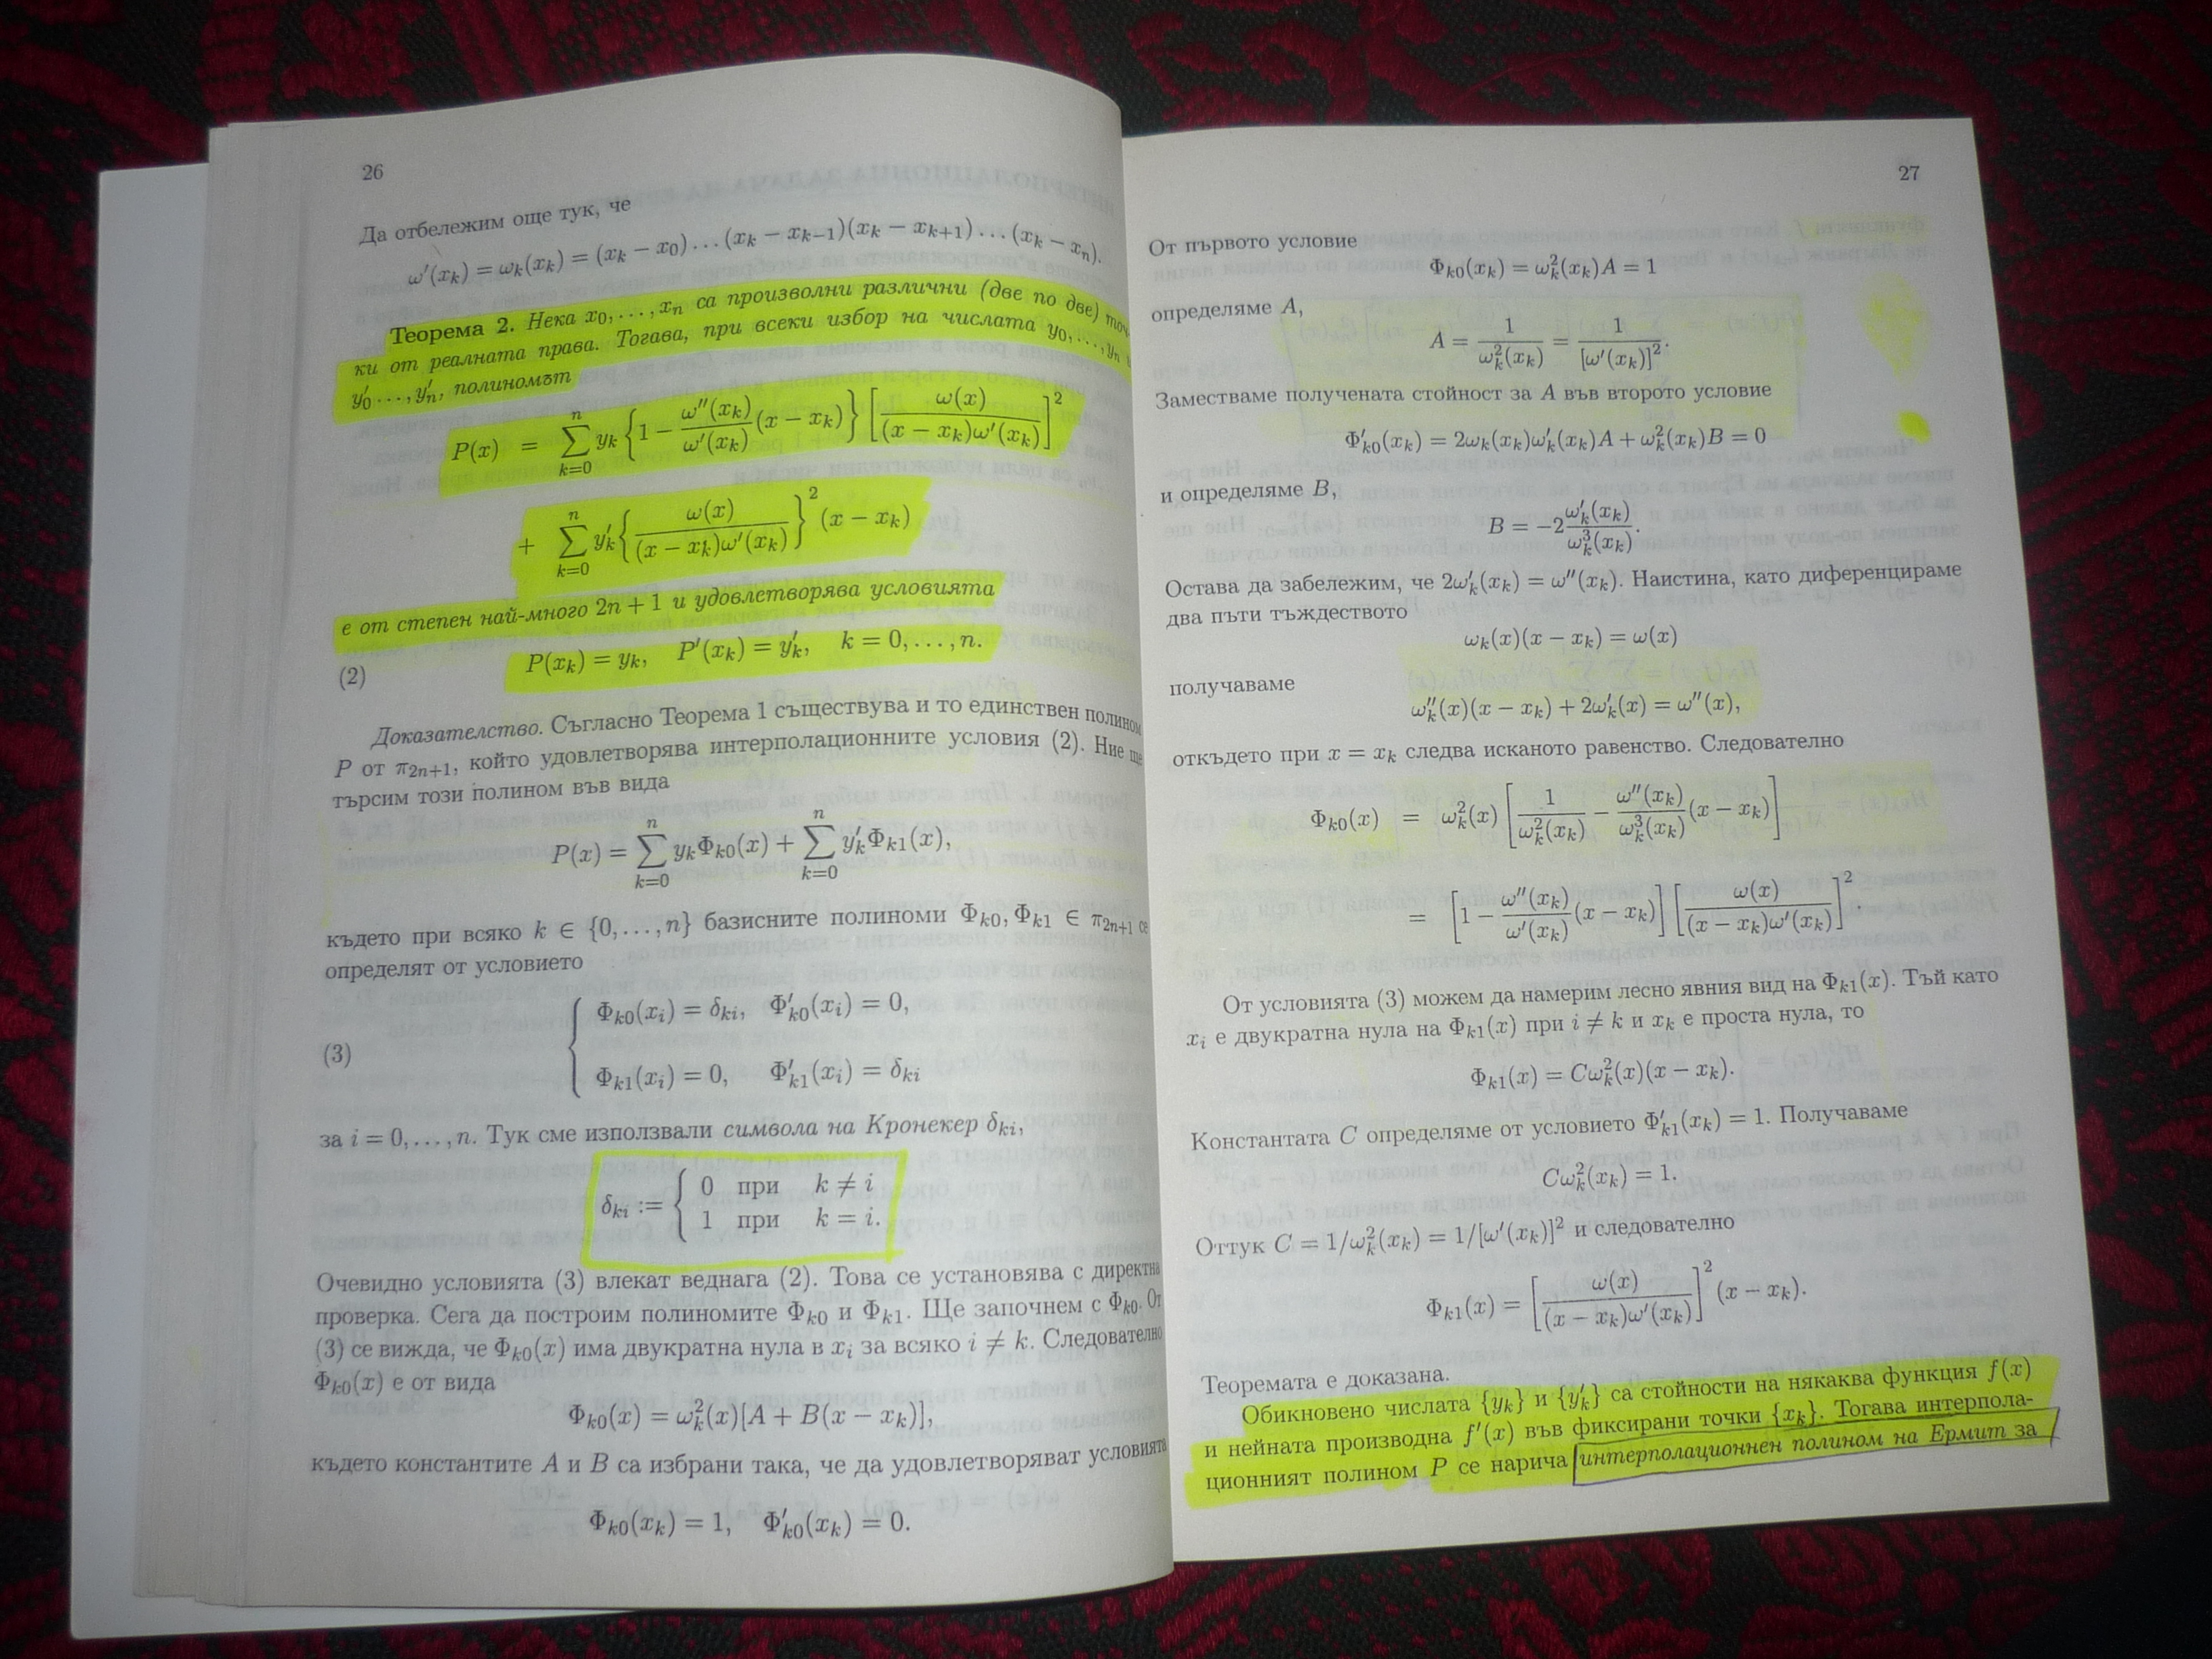 26
Да отбележим още тук, че
ω′(xₖ) = ωₖ(xₖ) = (xₖ − x₀) … (xₖ − xₖ₋₁)(xₖ − xₖ₊₁) … (xₖ − xₙ).
Теорема 2. Нека x₀, …, xₙ са произволни различни (две по две) точ-
ки от реалната права. Тогава, при всеки избор на числата y₀, …, yₙ
y′₀ …, y′ₙ, полиномът
P(x) = ∑ₖ₌₀ⁿ yₖ {1 − ω″(xₖ)/ω′(xₖ) (x − xₖ)} [ω(x)/((x − xₖ)ω′(xₖ))]²
+ ∑ₖ₌₀ⁿ y′ₖ {ω(x)/((x − xₖ)ω′(xₖ))}² (x − xₖ)
е от степен най-много 2n + 1 и удовлетворява условията
(2) P(xₖ) = yₖ, P′(xₖ) = y′ₖ, k = 0, …, n.
Доказателство. Съгласно Теорема 1 съществува и то единствен полином
P от π₂ₙ₊₁, който удовлетворява интерполационните условия (2). Ние ще
търсим този полином във вида
P(x) = ∑ₖ₌₀ⁿ yₖΦₖ₀(x) + ∑ₖ₌₀ⁿ y′ₖΦₖ₁(x),
където при всяко k ∈ {0, …, n} базисните полиноми Φₖ₀, Φₖ₁ ∈ π₂ₙ₊₁ се
определят от условието
Φₖ₀(xᵢ) = δₖᵢ, Φ′ₖ₀(xᵢ) = 0,
(3)
Φₖ₁(xᵢ) = 0, Φ′ₖ₁(xᵢ) = δₖᵢ
за i = 0, …, n. Тук сме използвали символа на Кронекер δₖᵢ,
δₖᵢ := { 0 при k ≠ i
1 при k = i.
Очевидно условията (3) влекат веднага (2). Това се установява с директна
проверка. Сега да построим полиномите Φₖ₀ и Φₖ₁. Ще започнем с Φₖ₀. От
(3) се вижда, че Φₖ₀(x) има двукратна нула в xᵢ за всяко i ≠ k. Следователно
Φₖ₀(x) е от вида
Φₖ₀(x) = ωₖ²(x)[A + B(x − xₖ)],
където константите A и B са избрани така, че да удовлетворяват условията
Φₖ₀(xₖ) = 1, Φ′ₖ₀(xₖ) = 0.
27
От първото условие
Φₖ₀(xₖ) = ωₖ²(xₖ)A = 1
определяме A,
A = 1/ωₖ²(xₖ) = 1/[ω′(xₖ)]².
Заместваме получената стойност за A във второто условие
Φ′ₖ₀(xₖ) = 2ωₖ(xₖ)ω′ₖ(xₖ)A + ωₖ²(xₖ)B = 0
и определяме B,
B = −2 ω′ₖ(xₖ)/ωₖ³(xₖ).
Остава да забележим, че 2ω′ₖ(xₖ) = ω″(xₖ). Наистина, като диференцираме
два пъти тъждеството
ωₖ(x)(x − xₖ) = ω(x)
получаваме
ω″ₖ(x)(x − xₖ) + 2ω′ₖ(x) = ω″(x),
откъдето при x = xₖ следва исканото равенство. Следователно
Φₖ₀(x) = ωₖ²(x) [1/ωₖ²(xₖ) − ω″(xₖ)/ωₖ³(xₖ) (x − xₖ)]
= [1 − ω″(xₖ)/ω′(xₖ) (x − xₖ)] [ω(x)/((x − xₖ)ω′(xₖ))]².
От условията (3) можем да намерим лесно явния вид на Φₖ₁(x). Тъй като
xᵢ е двукратна нула на Φₖ₁(x) при i ≠ k и xₖ е проста нула, то
Φₖ₁(x) = Cωₖ²(x)(x − xₖ).
Константата C определяме от условието Φ′ₖ₁(xₖ) = 1. Получаваме
Cωₖ²(xₖ) = 1.
Оттук C = 1/ωₖ²(xₖ) = 1/[ω′(xₖ)]² и следователно
Φₖ₁(x) = [ω(x)/((x − xₖ)ω′(xₖ))]² (x − xₖ).
Теоремата е доказана.
Обикновено числата {yₖ} и {y′ₖ} са стойности на някаква функция f(x)
и нейната производна f′(x) във фиксирани точки {xₖ}. Тогава интерпола-
ционният полином P се нарича интерполационнен полином на Ермит за